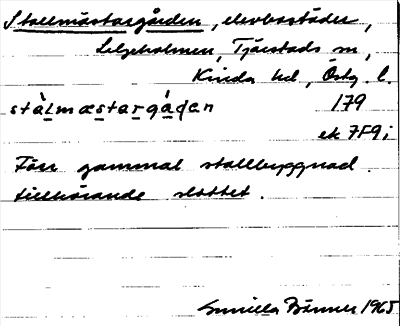 Stallmästaregården, elevbostäder,
Liljeholmen, Tjärstads sn,
Kinda hd, Östg. l.
stàlmæstargá̀den 179
ek 7F9i
Förr gammal stallbyggnad
tillhörande slottet.
Gunilla Bänner 1965